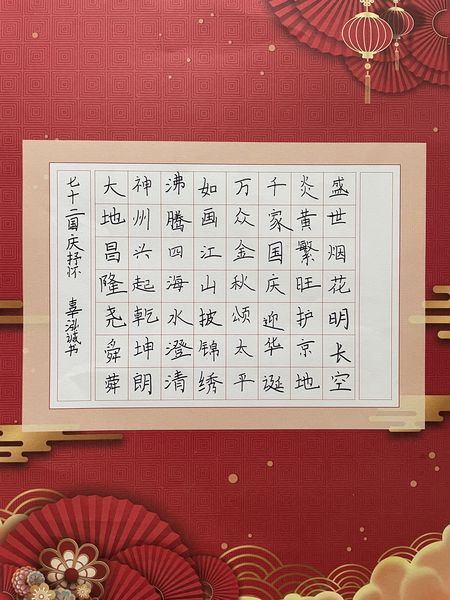 盛世烟花明长空
炎黄繁旺护京地
千家国庆迎华诞
万众金秋颂太平
如画江山披锦绣
沸腾四海水澄清
神州兴起乾坤朗
大地昌隆尧舜蕣
七十二国庆抒怀 辜泓诚书